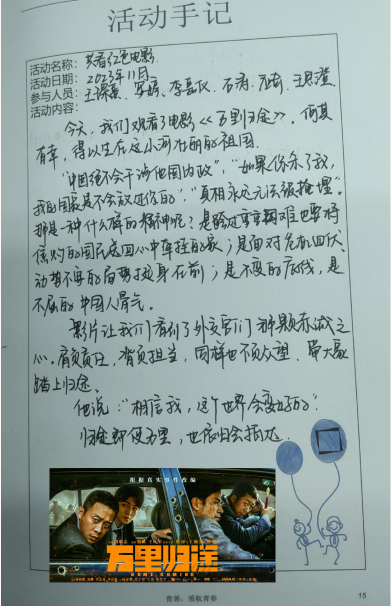 活动手记
活动名称：共看红色电影
活动日期：2023年11月
参与人员：
活动内容：
今天，我们观看了电影《万里归途》。何其
有幸，得以生在这山河壮丽的祖国。
“中国绝不会干涉他国内政”，“如果你杀了我，
我的国家是不会放过你的”，“真相永远无法被掩埋”。
那是一种什么样的精神呢？是跨过重重困难也要将
国民 心中牵挂的家；是面对危机四伏、
动荡不安的局势挺身在前；是不变的底线，是
不屈的中国人骨气。
影片让我们看到了外交官们那颗赤诚之
心。肩负责任，背负担当，同样也不负众望，带大家
踏上归途。
他说：“相信我，这个世界会变好的”。
归途即便万里，也 会抵达。
根据真实事件改编
万里归途
HOME COMING
IMAX
青领，领航青春
15